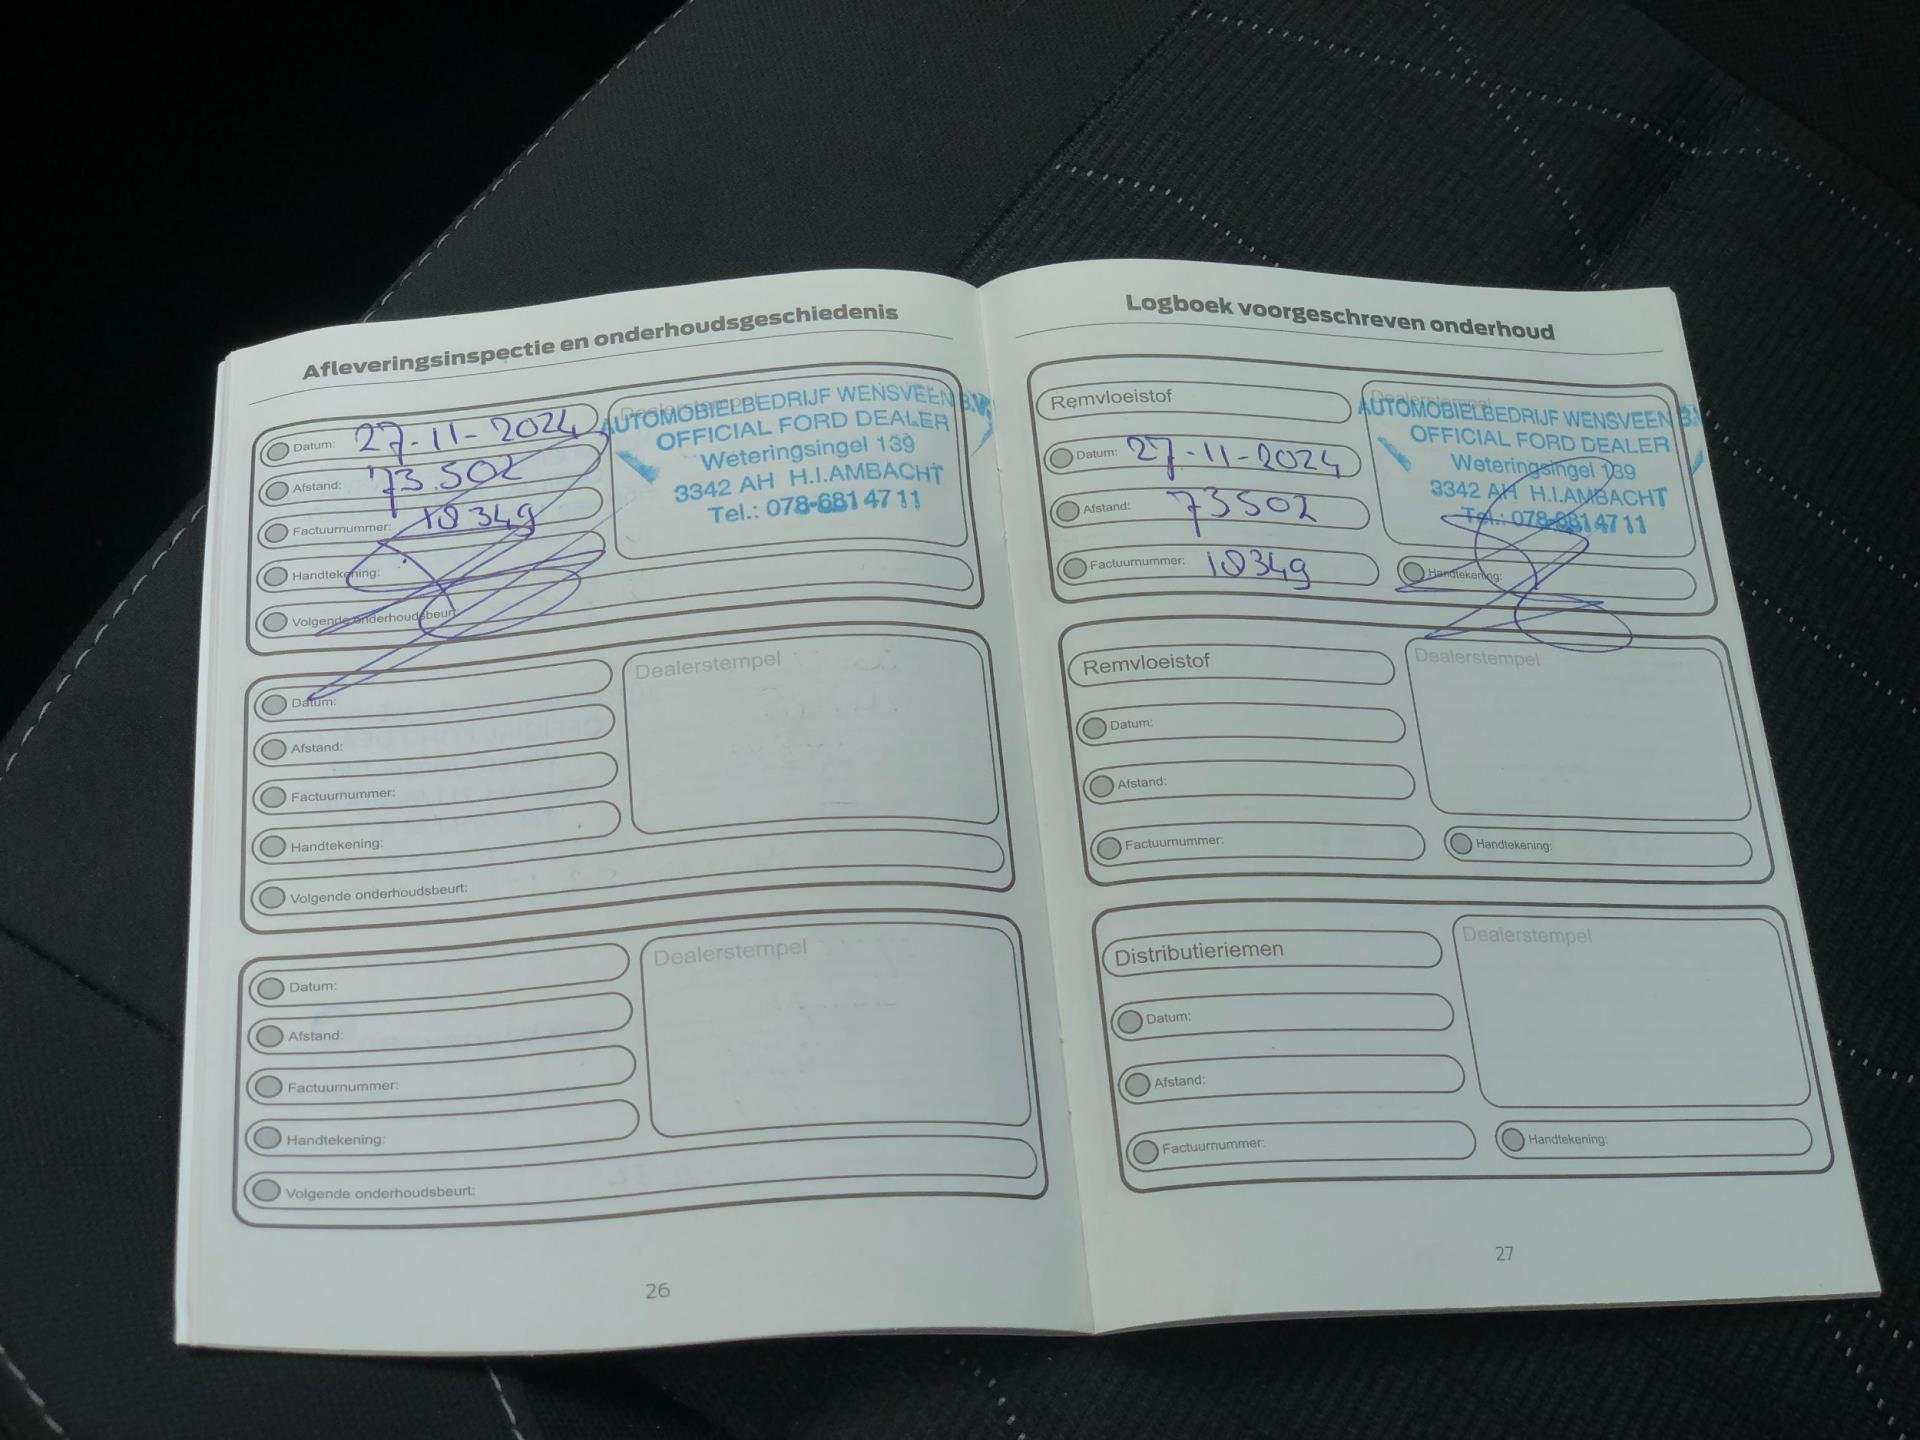 Afleveringsinspectie en onderhoudsgeschiedenis
Datum: 27-11-2024
Afstand: 73.502
Factuurnummer: 10349
Handtekening:
Volgende onderhoudsbeurt:
Dealerstempel
AUTOMOBIELBEDRIJF WENSVEEN B.V.
OFFICIAL FORD DEALER
Weteringsingel 139
3342 AH H.I.AMBACHT
Tel.: 078-681 47 11
Datum:
Afstand:
Factuurnummer:
Handtekening:
Volgende onderhoudsbeurt:
Dealerstempel
Datum:
Afstand:
Factuurnummer:
Handtekening:
Volgende onderhoudsbeurt:
Dealerstempel
26
Logboek voorgeschreven onderhoud
Remvloeistof
Datum: 27-11-2024
Afstand: 73502
Factuurnummer: 10349
Dealerstempel
AUTOMOBIELBEDRIJF WENSVEEN B.V.
OFFICIAL FORD DEALER
Weteringsingel 139
3342 AH H.I.AMBACHT
Tel.: 078-681 47 11
Handtekening:
Remvloeistof
Datum:
Afstand:
Factuurnummer:
Dealerstempel
Handtekening:
Distributieriemen
Datum:
Afstand:
Factuurnummer:
Dealerstempel
Handtekening:
27